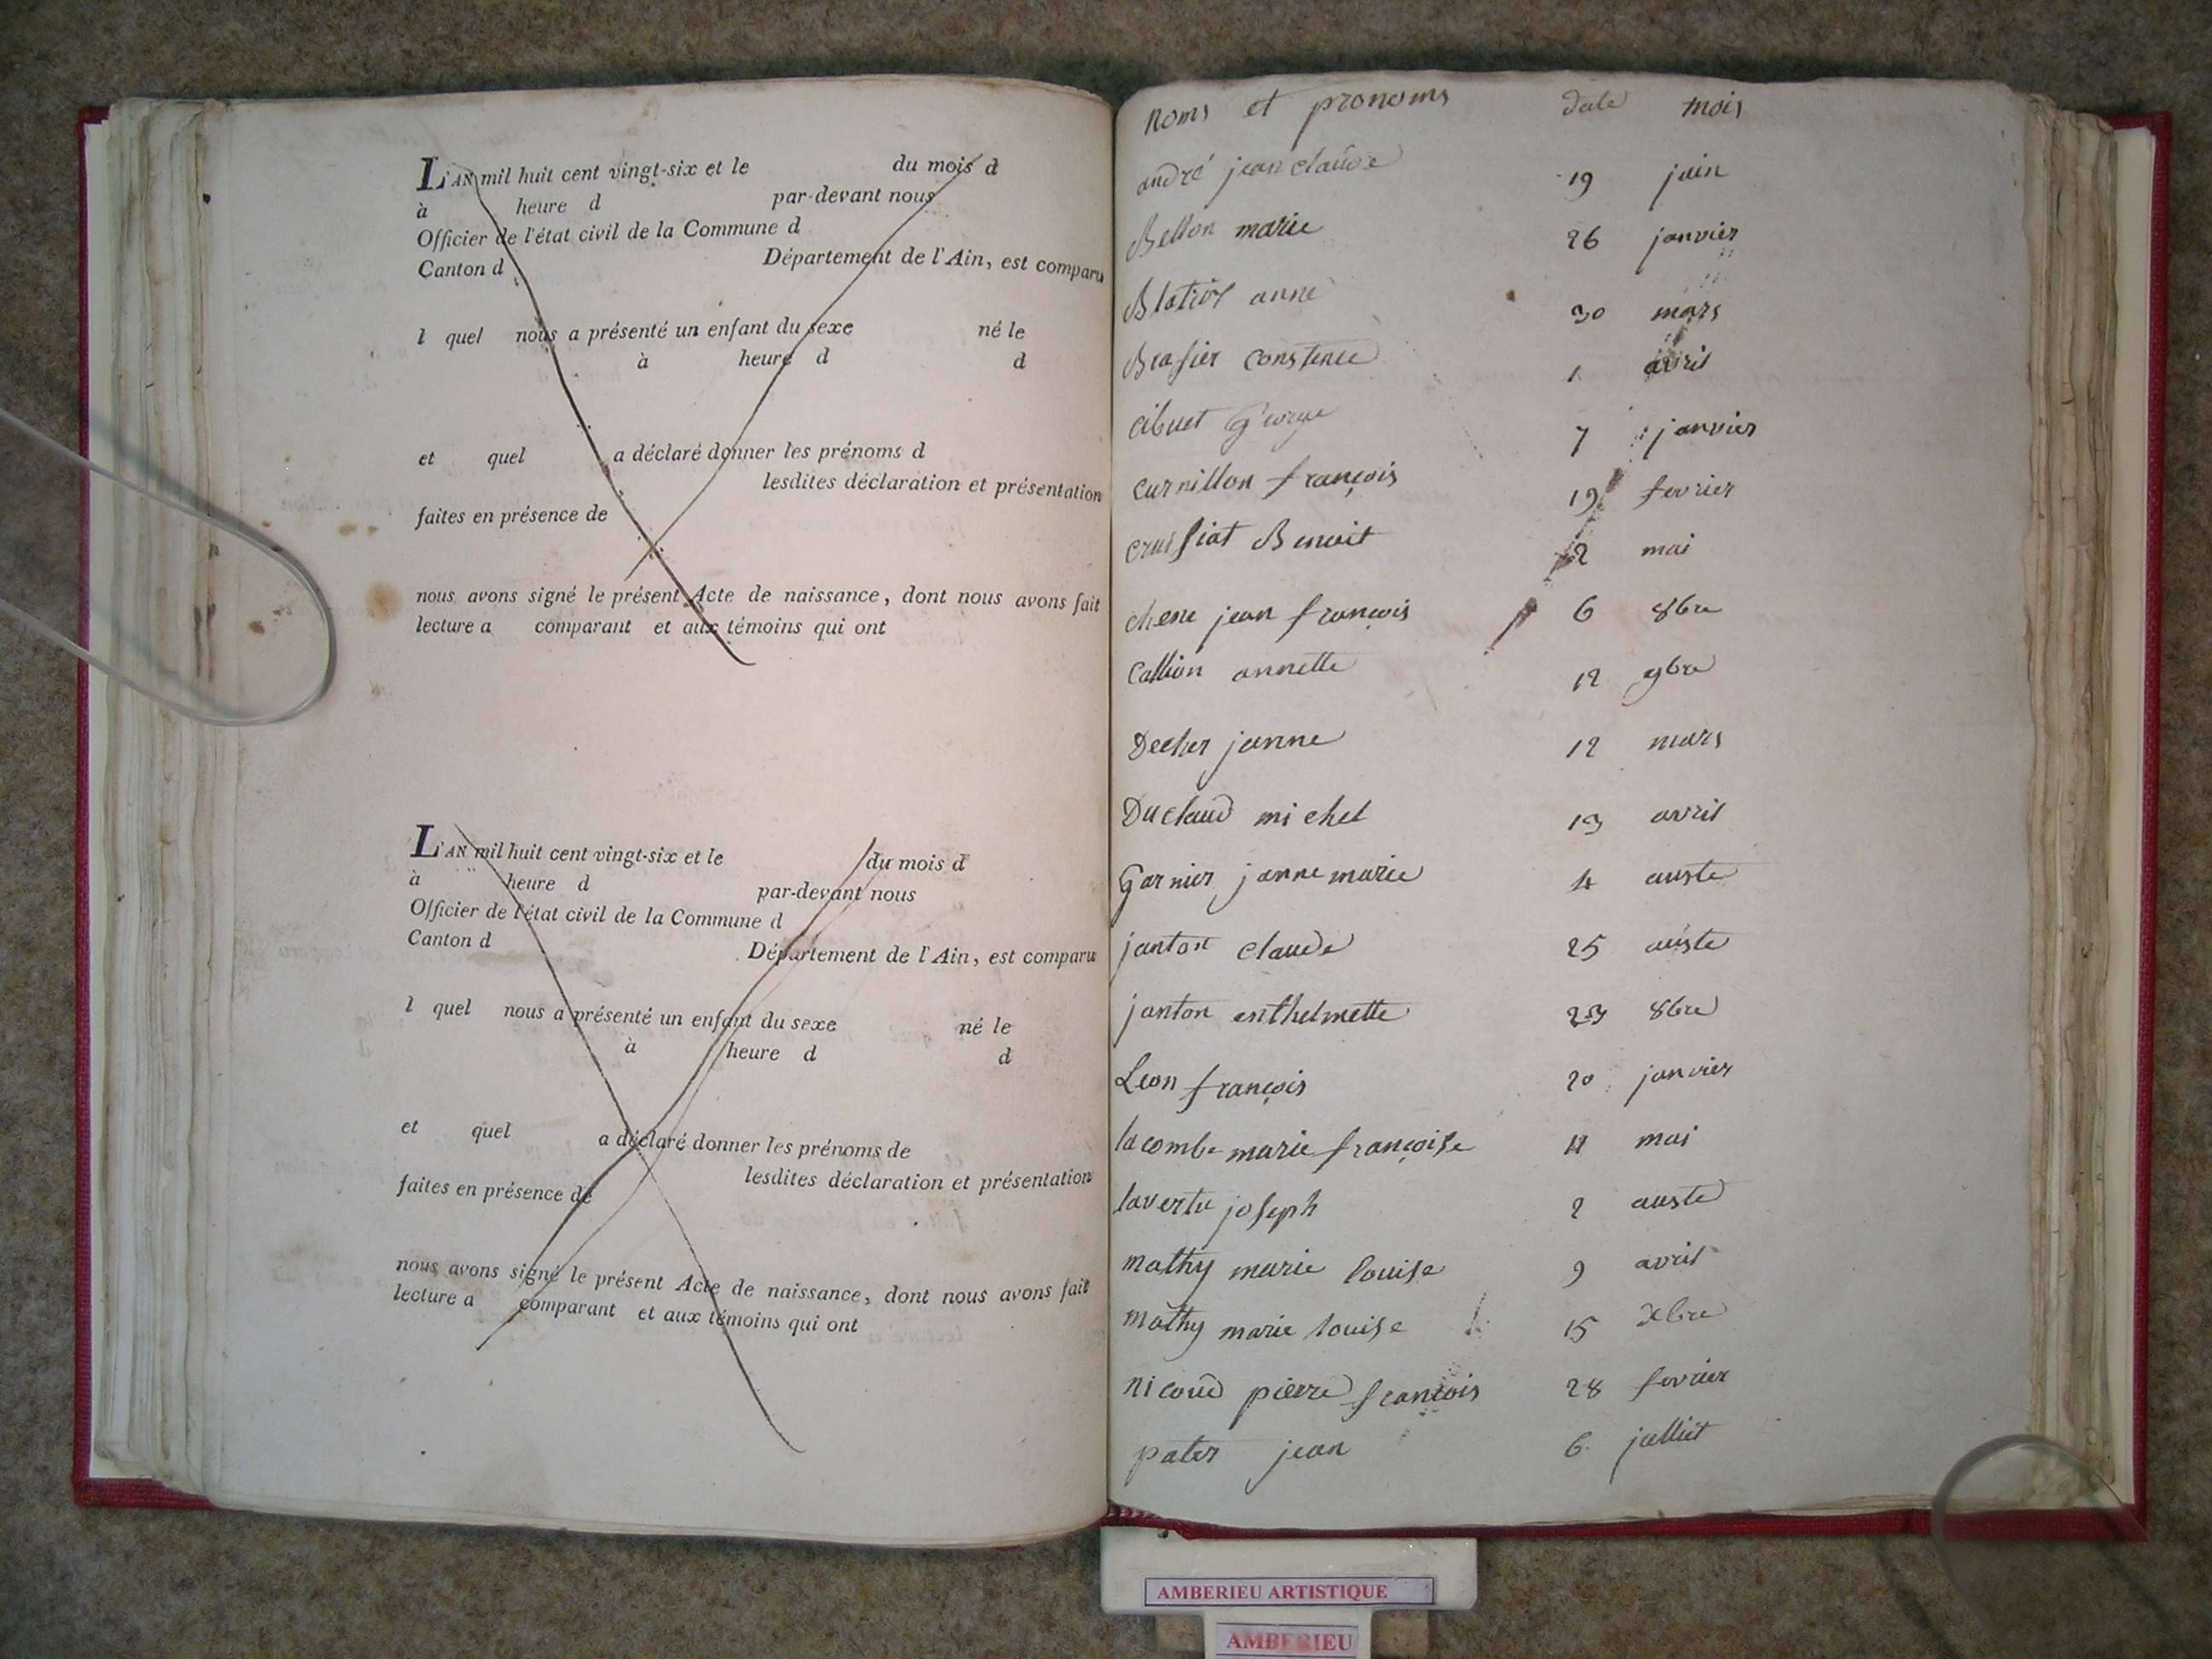 L'AN mil huit cent vingt-six et le du mois d
à heure d par-devant nous
Officier de l'état civil de la Commune d
Canton d Département de l'Ain, est comparu
l quel nous a présenté un enfant du sexe né le
à heure d d
et quel a déclaré donner les prénoms d
lesdites déclaration et présentation
faites en présence de
nous avons signé le présent Acte de naissance, dont nous avons fait
lecture a comparant et aux témoins qui ont
L'AN mil huit cent vingt-six et le du mois d
à heure d par-devant nous
Officier de l'état civil de la Commune d
Canton d Département de l'Ain, est comparu
l quel nous a présenté un enfant du sexe né le
à heure d d
et quel a déclaré donner les prénoms de
lesdites déclaration et présentation
faites en présence de
nous avons signé le présent Acte de naissance, dont nous avons fait
lecture a comparant et aux témoins qui ont
noms et pronoms date mois
andré jean claude 19 juin
Bellon marie 26 janvier
anne 30 mars
Brasier constence 1 avril
cibuet George 7 janvier
curnillon françois 19 fevrier
crussiat Benoit 2 mai
chene jean françois 6 8bre
Callion annette 12 9bre
Decher janne 12 mars
Duclaud michel 13 avril
Garnier janne marie 4 auste
janton claude 25 auste
janton enthelmette 23 8bre
Leon françois 20 janvier
lacombe marie françoise 11 mai
lavertu joseph 2 auste
mathy marie louise 9 avril
mathy marie louise 15 debre
nicoud pierre francois 28 fevrier
pater jean 6 julliet
AMBERIEU ARTISTIQUE
AMBERIEU